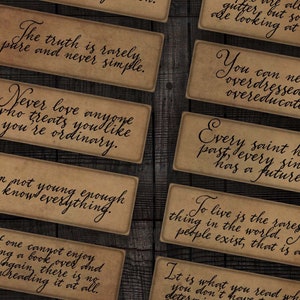 The truth is rarely
pure and never simple.
Never love anyone
who treats you like
you're ordinary.
not young enough
know everything.
one cannot enjoy
a book over and
there is no
reading it at all.
gutter but so
are looking at
You can ne
overdressed
overeducate
Every saint h
past, every sin
has a future
To live is the rares
thing in the world.
people exist, that is a
It is what you read w
you don't have